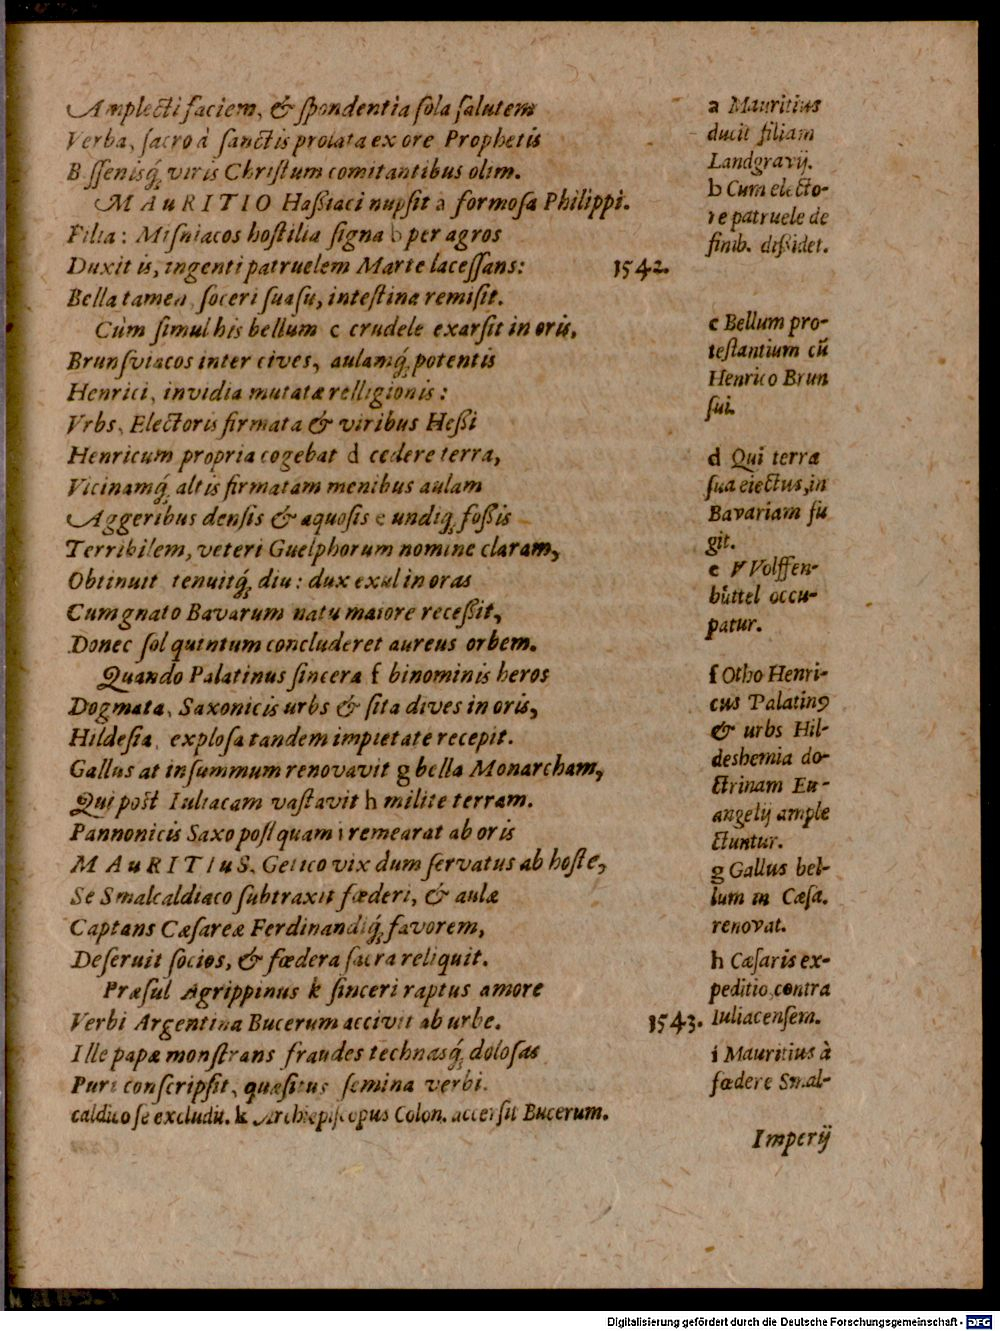 Amplecti faciem, & spondentia sola salutem
Verba, sacro à sanctis prolata ex ore Prophetis
Bessenisq́; viris Christum comitantibus olim.
MAuRITIO Haßiaci nupsit a formosa Philippi.
Filia: Misniacos hostilia signa b per agros
Duxit is, ingenti patruelem Marte lacessans: 1542.
Bella tamen, soceri suasu, intestina remisit.
Cùm simul his bellum c crudele exarsit in oris,
Brunsviacos inter cives, aulamq́; potentis
Henrici, invidia mutatæ relligionis:
Vrbs, Electoris firmata & viribus Heßi
Henricum propria cogebat d cedere terra,
Vicinamq́; altis firmatam menibus aulam
Aggeribus densis & aquosis e undiq; foßis
Terribilem, veteri Guelphorum nomine claram,
Obtinuit tenuitq́; diu: dux exul in oras
Cum gnato Bavarum natu maiore receßit,
Donec sol quintum concluderet aureus orbem.
Quando Palatinus sincera f binominis heros
Dogmata, Saxonicis urbs & sita dives in oris,
Hildesia, explosa tandem impietate recepit.
Gallus at in summum renovavit g bella Monarcham,
Qui post Iuliacam vastavit h milite terram.
Pannonicis Saxo postquam i remearat ab oris
MAuRITIuS, Getico vix dum servatus ab hoste,
Se Smalcaldiaco subtraxit fœderi, & aulæ
Captans Cæsareæ Ferdinandiq́; favorem,
Deseruit socios, & fœdera sacra reliquit.
Præsul Agrippinus k sinceri raptus amore
Verbi Argentina Bucerum accivit ab urbe. 1543.
Ille papæ monstrans fraudes technasq́; dolosas
Puri conscripsit, quæsitus semina verbi.
a Mauritius
ducit filiam
Landgravij.
b Cum electo-
re patruele de
finib. dißidet.
c Bellum pro-
testantium cũ
Henrico Brun
sui.
d Qui terra
sua eiectus, in
Bavariam fu
git.
e VVolffen-
bůttel occu-
patur.
f Otho Henri-
cus Palatin9
& urbs Hil-
deshemia do-
ctrinam Eu-
angelij ample
ctuntur.
g Gallus bel-
lum in Cæsa.
renovat.
h Cæsaris ex-
peditio contra
Iuliacensem.
i Mauritius à
fœdere Smal-
caldico se excludit. k Archiepiscopus Colon. accersit Bucerum.
Imperij
Digitalisierung gefördert durch die Deutsche Forschungsgemeinschaft - DFG